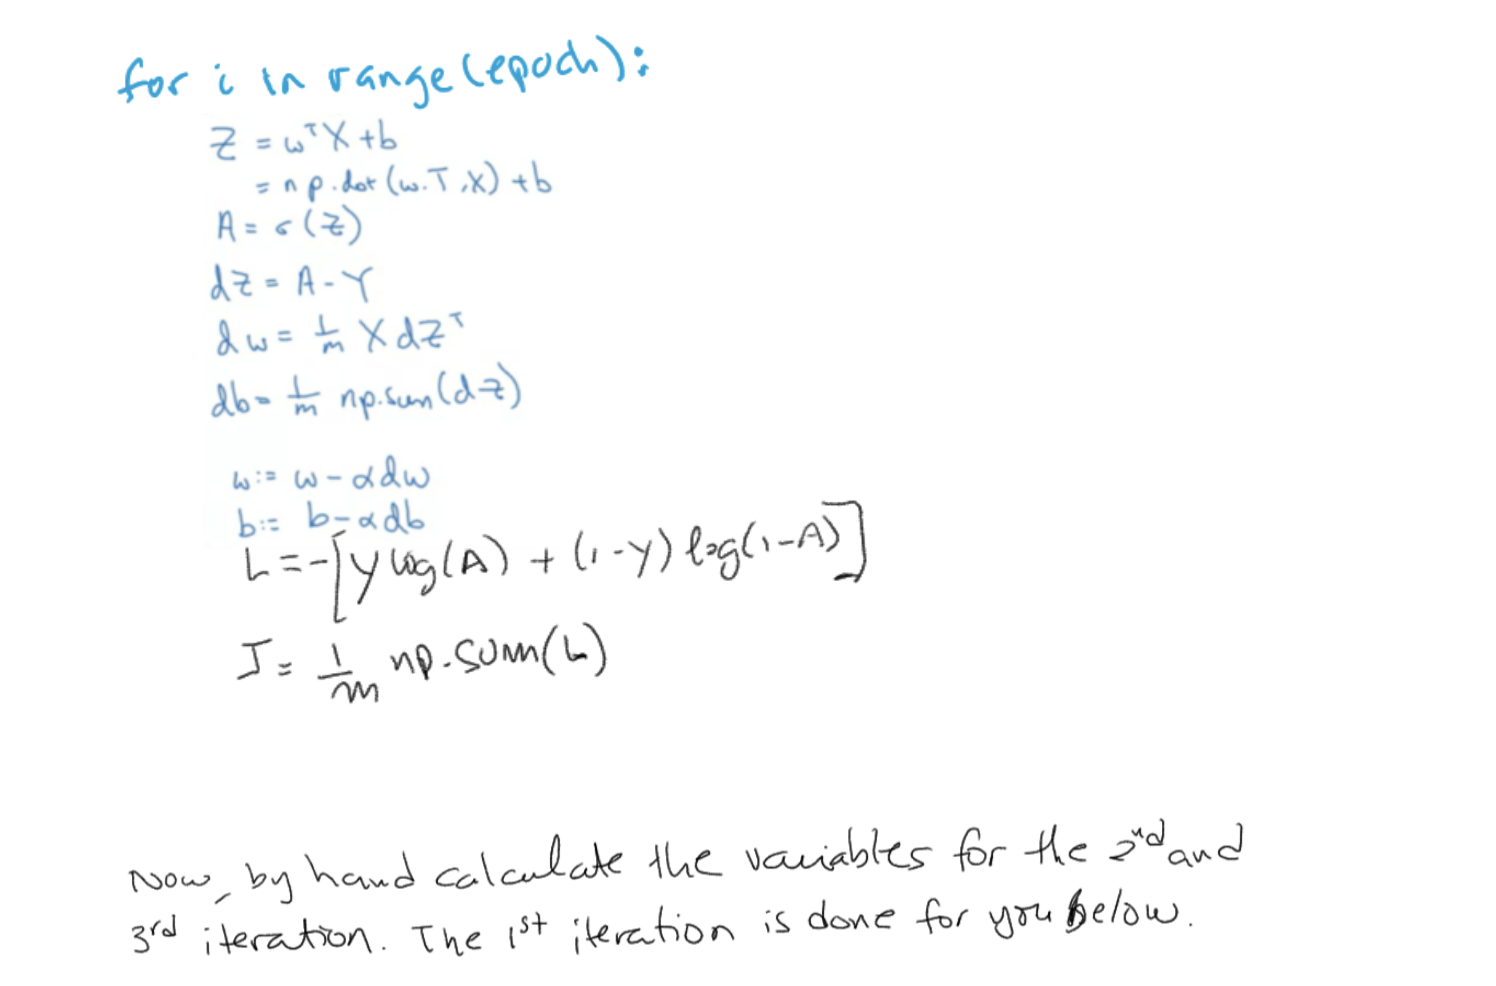 for i in range(epoch):
Z = wᵀX + b
= np.dot(w.T, X) + b
A = σ(Z)
dZ = A - Y
dw = 1/m X dZᵀ
db = 1/m np.sum(dZ)
w := w - α dw
b := b - α db
L = -[y log(A) + (1-y) log(1-A)]
J = 1/m np.sum(L)
Now, by hand calculate the variables for the 2nd and
3rd iteration. The 1st iteration is done for you below.